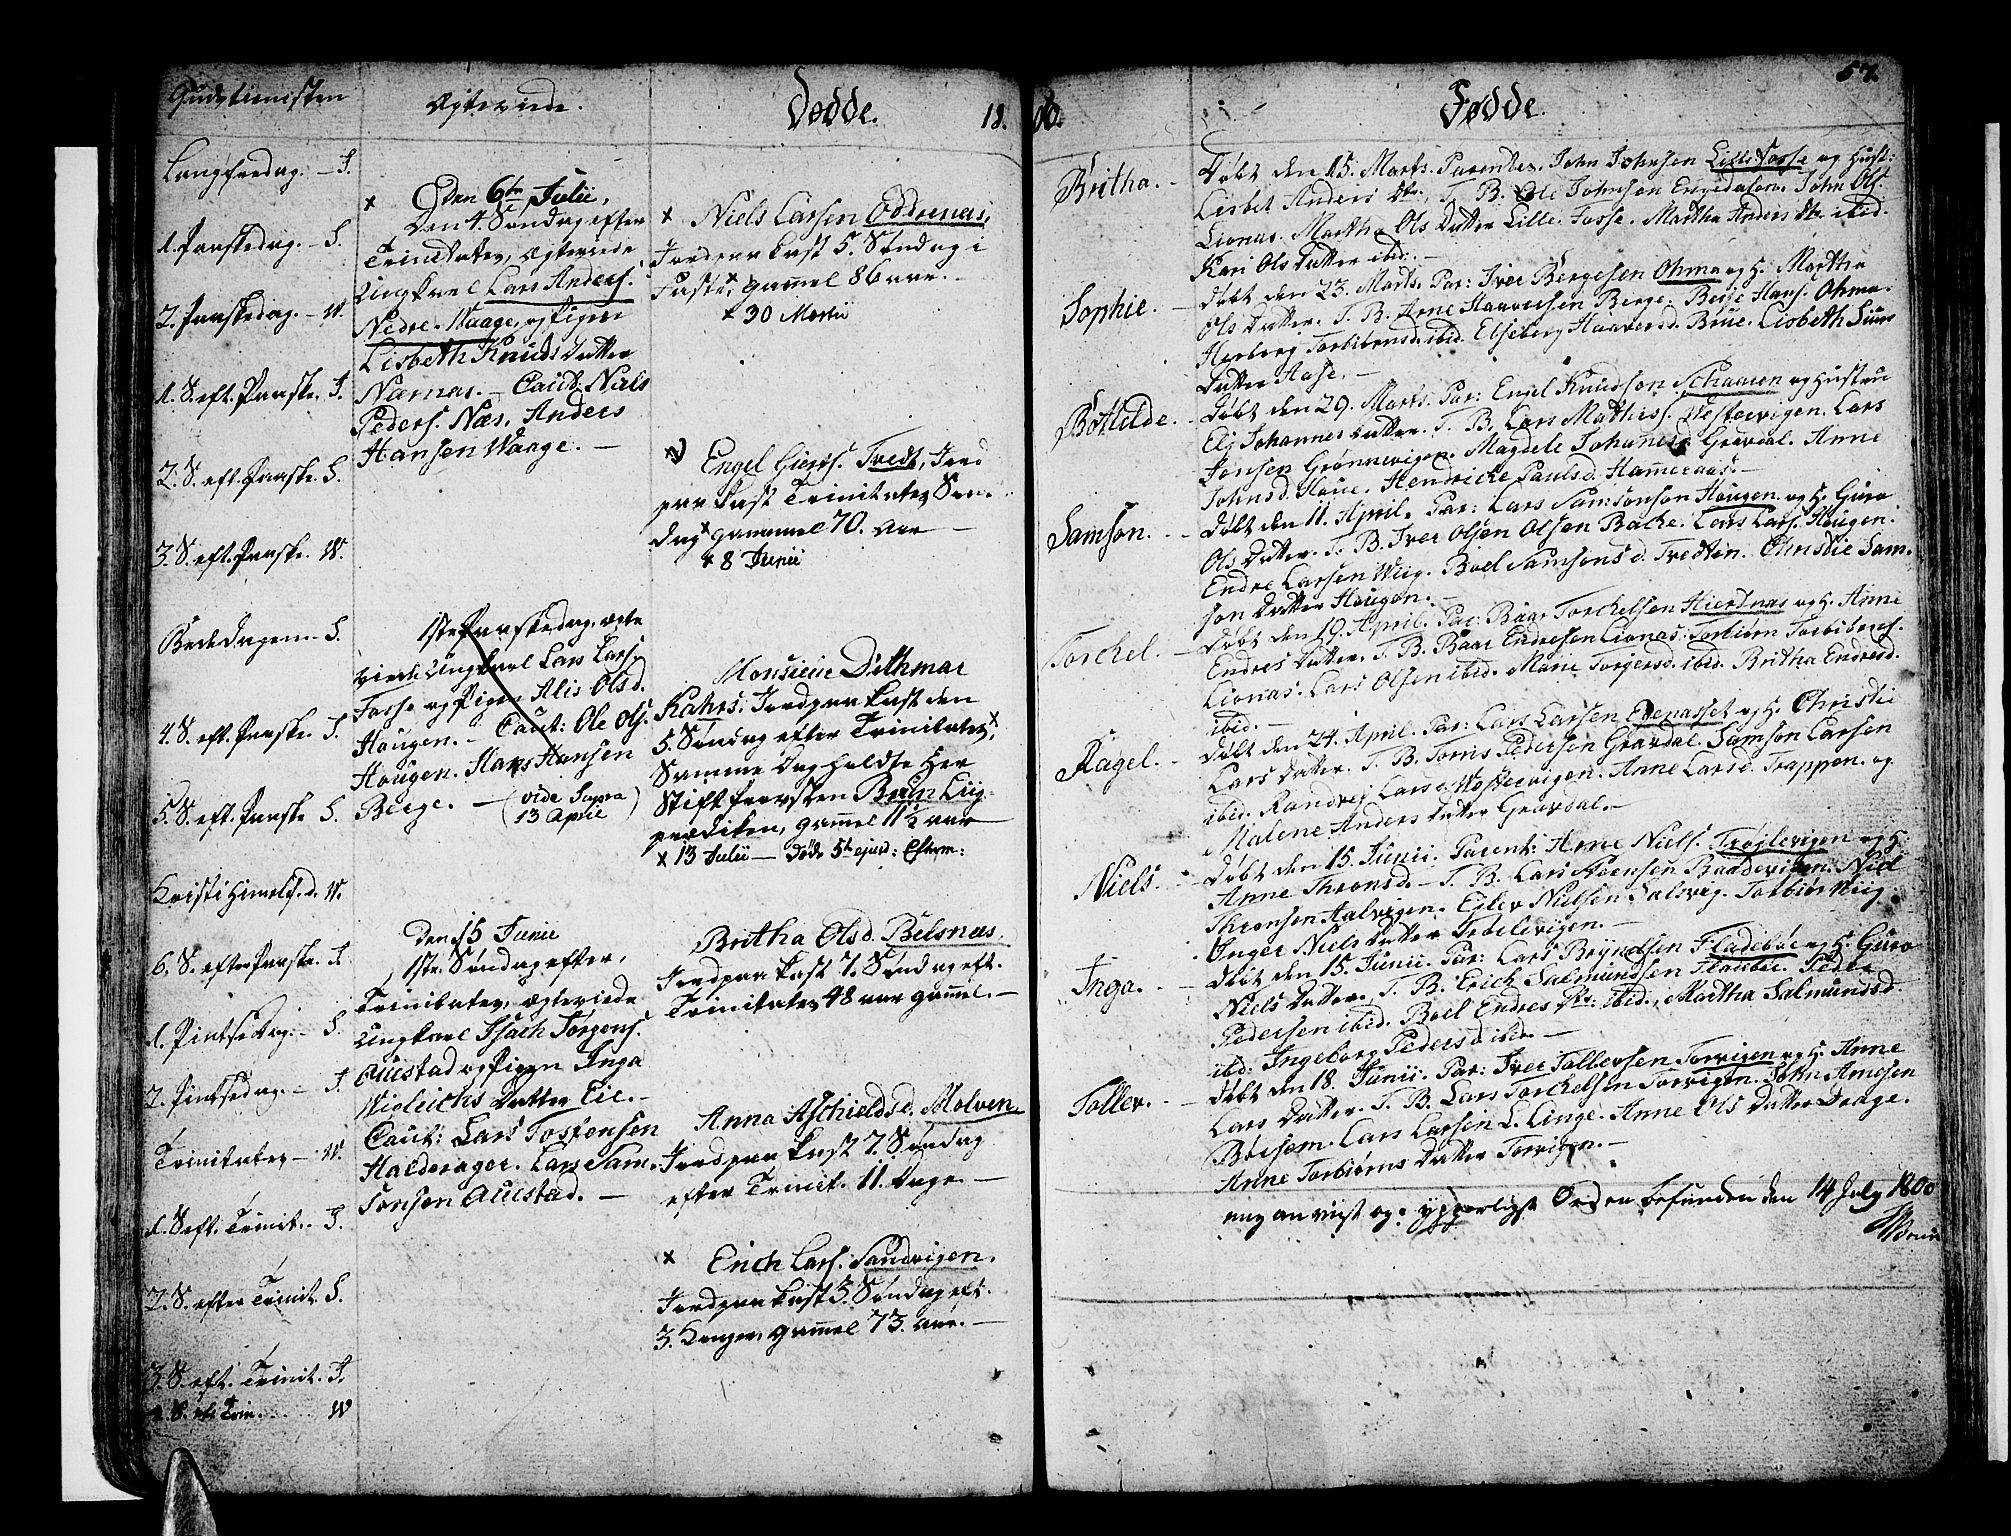 Gudstienisten
Langfredag. – J.
1. Paaskedag. – S.
2. Paaskedag. – W.
1. S. eft. Paaske. J.
2. S. eft. Paaske. S.
3. S. eft. Paaske. W.
Bededagen. – S.
4. S. eft. Paaske J.
5. S. eft. Paaske S.
Kristi Himelf. d. W.
6. S. efter Paaske. J.
1. Pintsedag. – S.
2. Pintsedag. – J.
Trinitates – W.
1. S. eft. Trinit. J.
2. S. efter Trinit. S.
3. S. eft. Trinit. J.
4. S. eft Trin. ... W
Ægteviede.
× Den 6te Julii,
Den 4. Søndag efter
Trinitates, Ægteviede
Ungkarl Lars Anders.
Nedre-Waage, og Pigen
Lisbeth Knuds Datter
Nærnæs. – Caut: Niels
Peders. Næs, Anders
Hansen Waage. –
1ste Paaskedag, ægte
viede Ungkarl Lars Lars.
Fosse og Pigen Alis Olsd.
Hougen. – Caut: Ole Ols.
Hougen. Hans Hansen
Berge. – (vide Supra
13 Aprile)
Den 15 Junii
1ste Søndag efter,
Trinitates, ægteviede
Ungkarl Isach Jørgens.
Auestad og Pigen Inga
Wigleichs Datter Eie. –
Caut: Lars Tostensen
Halderager. Lars Sam-
sonsen Auestad. –
Dødde.
18.
× Niels Larsen Oddrenæs,
Jordpaakast 5. Søndag i
Faste× gammel 86 aar. –
× 30 Martii
Engel Giers. Tredt, Jord
paakast Trinitates Søn-
dag× gammel 70. aar –
× 8 Junii
Monsieur Dithmar
Kahrs. Jordpaakast den
5. Søndag efter Trinitates,×
Samme Dag holdte Her
Stift Provsten Bruun Liig-
prædiken, gammel 11½ aar
× 13 Julii – døde 5te ejusd:
Britha Olsd. Belsnæs.
Jordpaakast 7. Søndag eft.
Trinitates 48 aar gammel. –
Anna Aschieldsd. Molven.
Jordpaakast 7. Søndag
efter Trinit. 11. Dage. –
× Erich Lars. Sandvigen.
Jordpaakast 3. Søndag eft.
3. Konger, gammel 73. aar. –
00.
57.
Fødde.
Britha. – Døbt den 15. Marts. Parentes. John Johnsen Lille Fosse og Hust:
Lisbet Anders Dtr, T. B. Ole Johnsen Engedalen. John Ols.
Lionas. Martha Ols Datter Lille Fosse. Martha Anders Dtr ibid.
Kari Ols Datter ibid. –
Sophie. – Døbt den 23. Marts. Par: Iver Bergesen Ohma og H. Martha
Ols Datter. T. B. Arne Haaversen Berge. Berje Hans. Ohma.
Herborg Torbiönsd. ibid. Elseberg Haaversd. Brue. Lisbeth Siurs
Datter Aase. –
Bothilde. – Døbt den 29. Marts. Par: Engel Knudson Schaanen og Hustru
Eli Johannes Datter. T. B. Lars Mathiss. Westervigen. Lars
Jonsen Grønnevigen. Magdele Johanesd Gravdal. Anne
Johnsd. Houe. Hendricke Paulsd. Hameraas. –
Samson. – Døbt den 11. April. Par: Lars Samsonson Hougen og H. Guro
Ols Datter. T. B. Iver Olsen Olsen Bache. Lars Lars. Hougen.
Endre Larsen Wiig. Boel Samsonsd. Tredten. Christie Sam-
son Datter Hougen. –
Torchel. – Døbt den 19. April. Par: Baar Torchelsen Hiertnæs og H. Anne
Endres Datter. T. B. Baar Endresen Lionas. Torbiørn Torbiöns.
Lionas. Lars Olsen ibid. Marie Torgersd. ibid. Britha Endresd.
ibid. –
Ragel. – Døbt den 24. April. Par: Lars Larsen Edenasset og H. Christi
Lars Datter. T. B. Tørris Pedersen Gravdal. Samson Larsen
ibid. Randvej Larsd. Westervigen. Anne Larsd. Trappen. og
Malene Anders Datter Gravdal. –
Niels. – Døbt den 15. Junii. Parent: Arne Niels. Trøjlevigen og H.
Anne Thronsd. – T. B. Lars Steensen Baadevigen. Niel
Thronsen Aalvigen. Eilev Nielsen Salsveg. Torbiør Wiig.
Inger Niels Datter Trølevigen. –
Inga. – Døbt den 15. Junii. Par: Lars Bryndsen Fladebøe og H. Guro
Niels Datter. T. B. Erich Salmundsen Fladbøe. Peder
Pedersen ibid. Boel Endres Dtr: ibid. Martha Salmundsd.
ibid: Ingeborg Pedersd ibid –
Toller. – Døbt den 18. Junii. Par: Iver Tollersen Torvigen og H. Anne
Lars Datter. T. B. Lars Torchelsen Torvigen. John Arnesen
Børsem. Lars Larsen L. Linge. Anne Ols Datter Daage.
Anne Torbiørns Datter Torvigen. –
mig anviist og i ypperligst Orden befunden den 14 July 1800